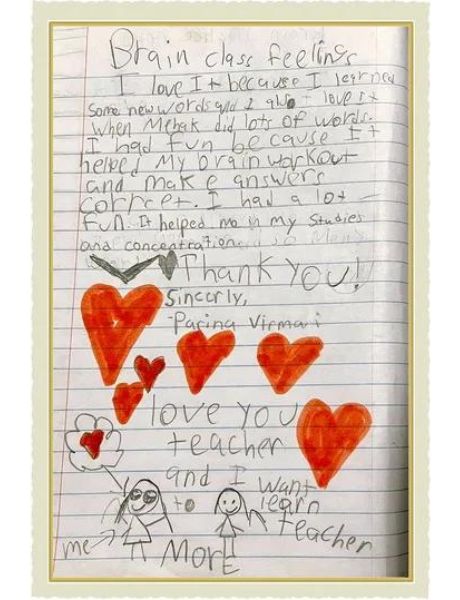 Brain class feelings
I love It because I learned
some new words and I also love it
when Mehak did lots of words.
I had fun because It
helped My brain workout
and make answers
correct. I had a lot
fun. It helped me in my studies
and concentration.
Thank YOU!
Sincerly,
Parina Virmani
love you
teacher
and I want
to learn
me teacher
MORE